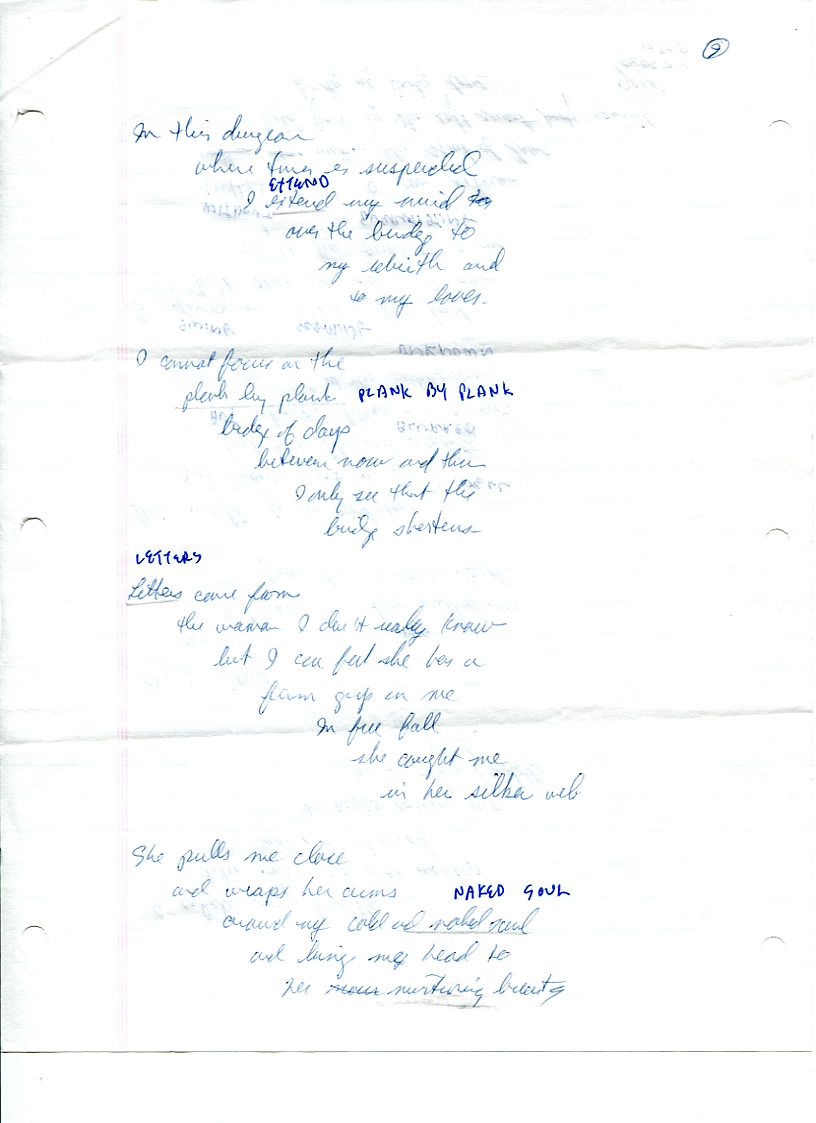 9
In this dungeon
where time is suspended
EXTEND
I extend my mind to
over the bridge to
my rebirth and
to my loves.
I cannot focus on the
plank by plank PLANK BY PLANK
bridge of days
between now and then
I only see that the
bridge shortens
LETTERS
Letters come from
the woman I don't really know
but I can feel she has a
firm grip on me
In free fall
she caught me
in her silken web
She pulls me close
and wraps her arms NAKED SOUL
around my cold and naked soul
and brings my head to
her nurturing breasts